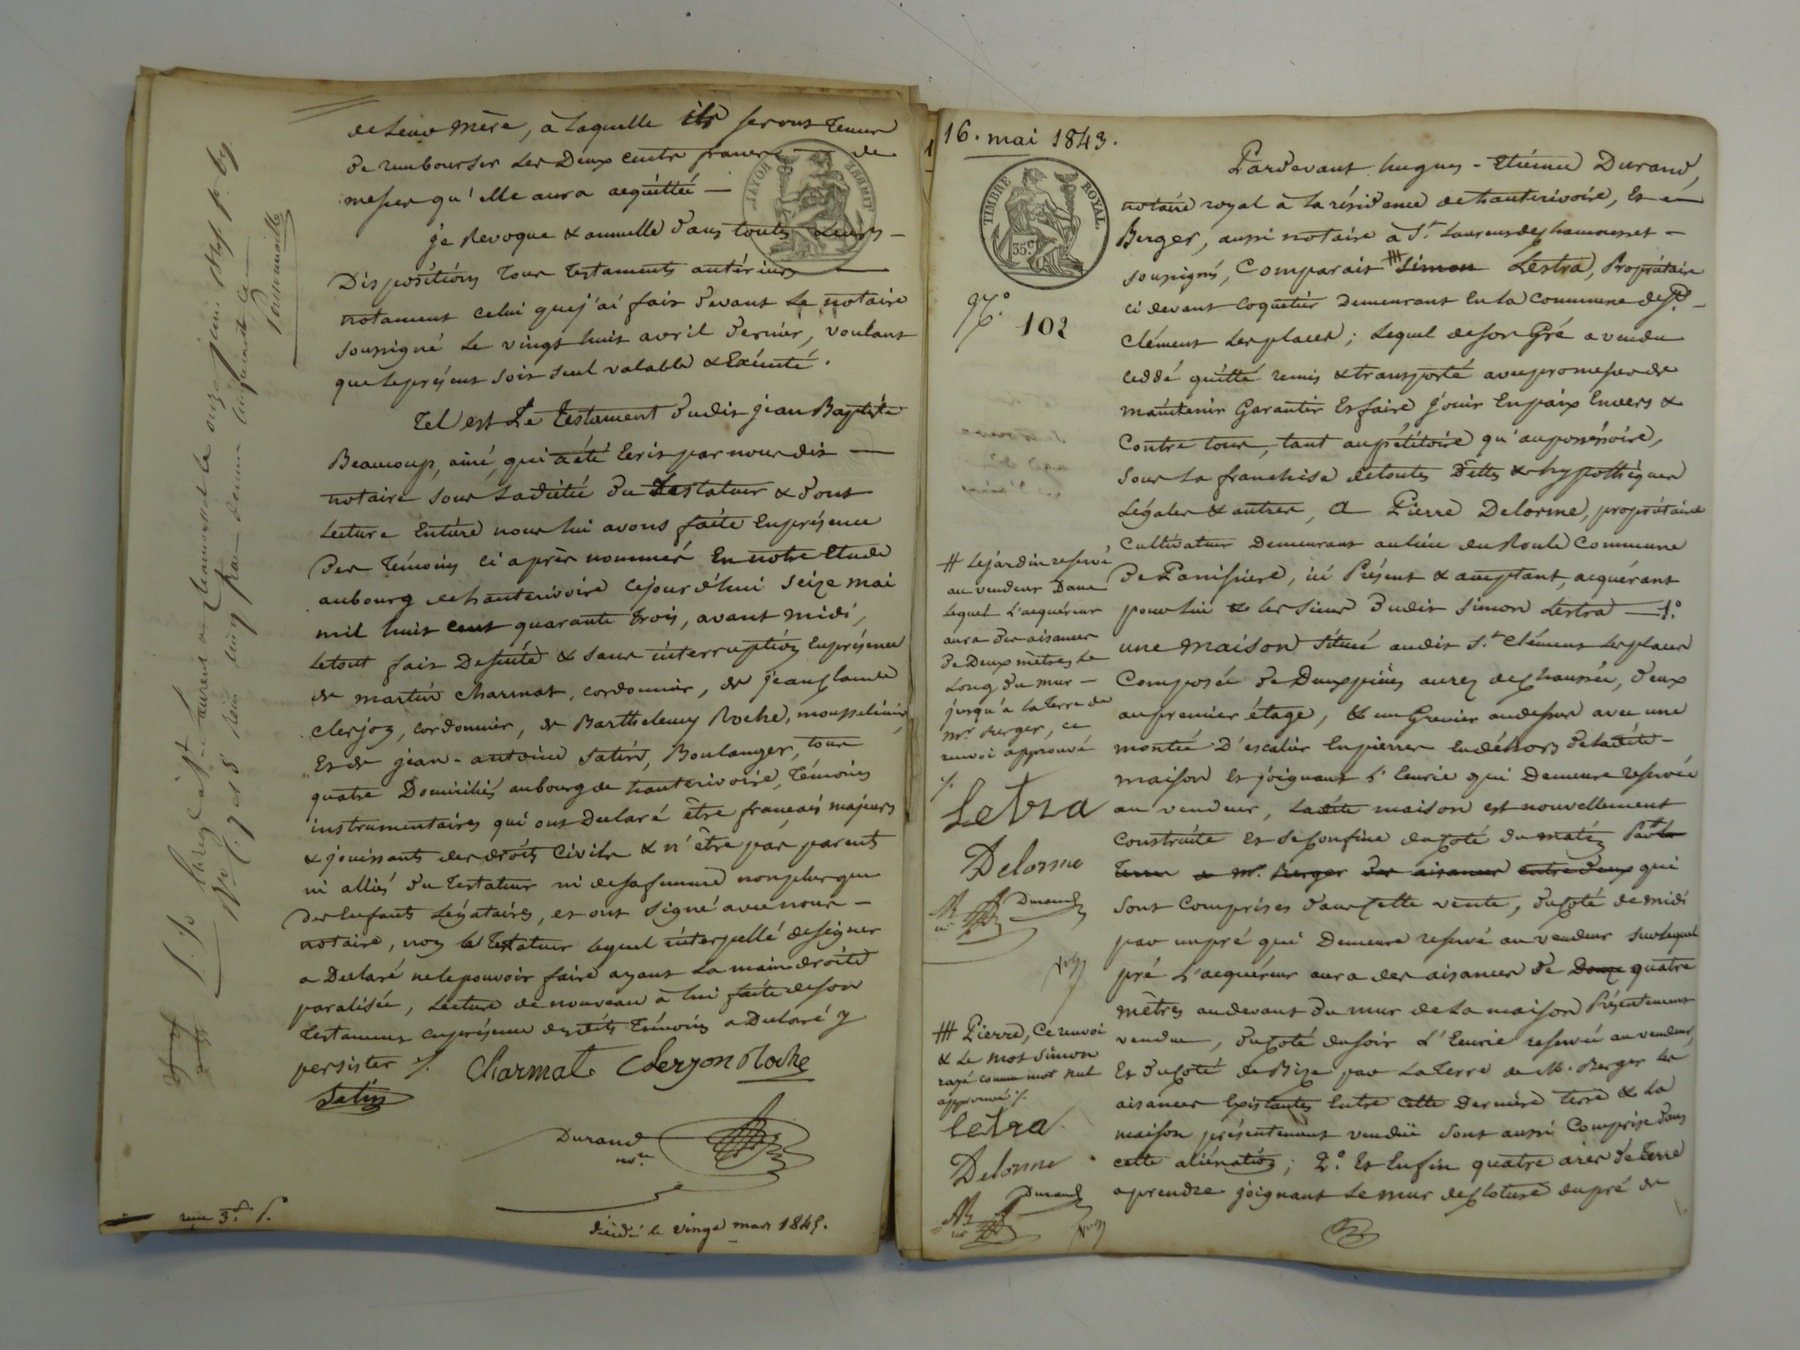 de leur mère, à laquelle ils seront tenus
de rembourser les deux cents francs de
messes qu'elle aura acquittée —
je Revoque & annulle dans toutes leurs —
Dispositions tous testaments antérieurs —
notament celui que j'ai fait devant le notaire
soussigné le vingt huit avril dernier, voulant
que le présent soit seul valable & Exécuté.
Tel est Le testament dudit jean Baptiste
Beaucoup, ainé, qui a été Ecrit par nous dit —
notaire sous la dictée du testateur & dont
Lecture Entière nous lui avons faite En présence
Des Témoins ci après nommés En notre Etude
au bourg de hauterivoire Cejourd'hui seize mai
mil huit cent quarante trois, avant midi,
le tout fait De suite & sans interruption En présence
de martin charmat, cordonnier, de jean claude
clerjon, cordonnier, de Barthelemy Roche, mousselinier,
Et de jean-antoine satin, Boulanger, tous
quatre Domiciliés au bourg de hauterivoire, témoins
instrumentaires qui ont Declaré être français majeurs
& jouissants des droits Civils & n'être pas parents
ni alliés du testateur ni de sa femme non plus que
Des Enfants Légataires, et ont signé avec nous —
notaire, non le testateur lequel interpellé de signer
a Declaré ne le pouvoir faire ayant la main droite
paralisée, Lecture de nouveau à lui faite de son
testament en présence desdits témoins a Declaré y
persister ./. Charmat Clerjon Roche
Satin
Durand
nore
décédé le vingt mars 1845.
16. mai 1843.
TIMBRE ROYAL
35c
102
Pardevant hugues-Etienne Durand,
notaire royal à la résidence de hauterivoire, Et en
Berger, aussi notaire à St. Laurent de chamousset —
soussignés, Comparait # Simon Lestra, Propriétaire
ci devant Coquetier Demeurant En la Commune de St. —
Clément les places; Lequel de son Gré a vendu
ceddé quitté remis & transporté avec promesse de
maintenir Garantir Et faire jouir En paix Envers &
Contre tous, tant au pétitoire qu'au possessoire,
sous la franchise de toutes Dettes & hypothèques
Légales & autres, A Pierre Delorme, propriétaire
Cultivateur Demeurant au lieu du Roule Commune
De Panissière, ici Présent & acceptant, acquérant
pour lui & les siens dudit Simon Lestra — 1.°
une maison située audit St. Clément les places
Composée de Deux pièces au rez de chaussée, deux
au premier étage, & un Grenier au dessus avec une
montée D'escalier En pierres En déhors de ladite —
maison Et joignant L'Ecurie qui Demeure réservée
au vendeur, ladite maison est nouvellement
Construite Et se Confine du Coté du matin Par la
terre de Mr. Berger Des aisances entre deux qui
sont Comprises dans Cette vente, du Coté de midi
par un pré qui Demeure réservé au vendeur sur lequel
pré L'acquéreur aura des aisances de Douze quatre
mètres au devant du mur de la maison Présentement
vendue, du Coté du soir L'Ecurie reservée au vendeur,
Et du Coté de Bize par La terre de M. Berger Les
aisances Existantes Entre Cette Dernière terre & La
maison présentement vendue sont aussi Comprise dans
cette aliénation; 2.° Et Enfin quatre ares de terre
a prendre joignant Le mur de Cloture du pré de
# Le jardin reservé
au vendeur Dans
lequel L'acquéreur
aura des aisances
De Deux mètres Le
Long du mur —
jusqu'à la terre de
Mr. Berger, ce
renvoi approuvé
./.
Letra
Delorme
Durand
# Pierre, Ce renvoi
& Le mot Simon
rayé comme mot nul
approuvés ./.
Letra
Delorme
Durand